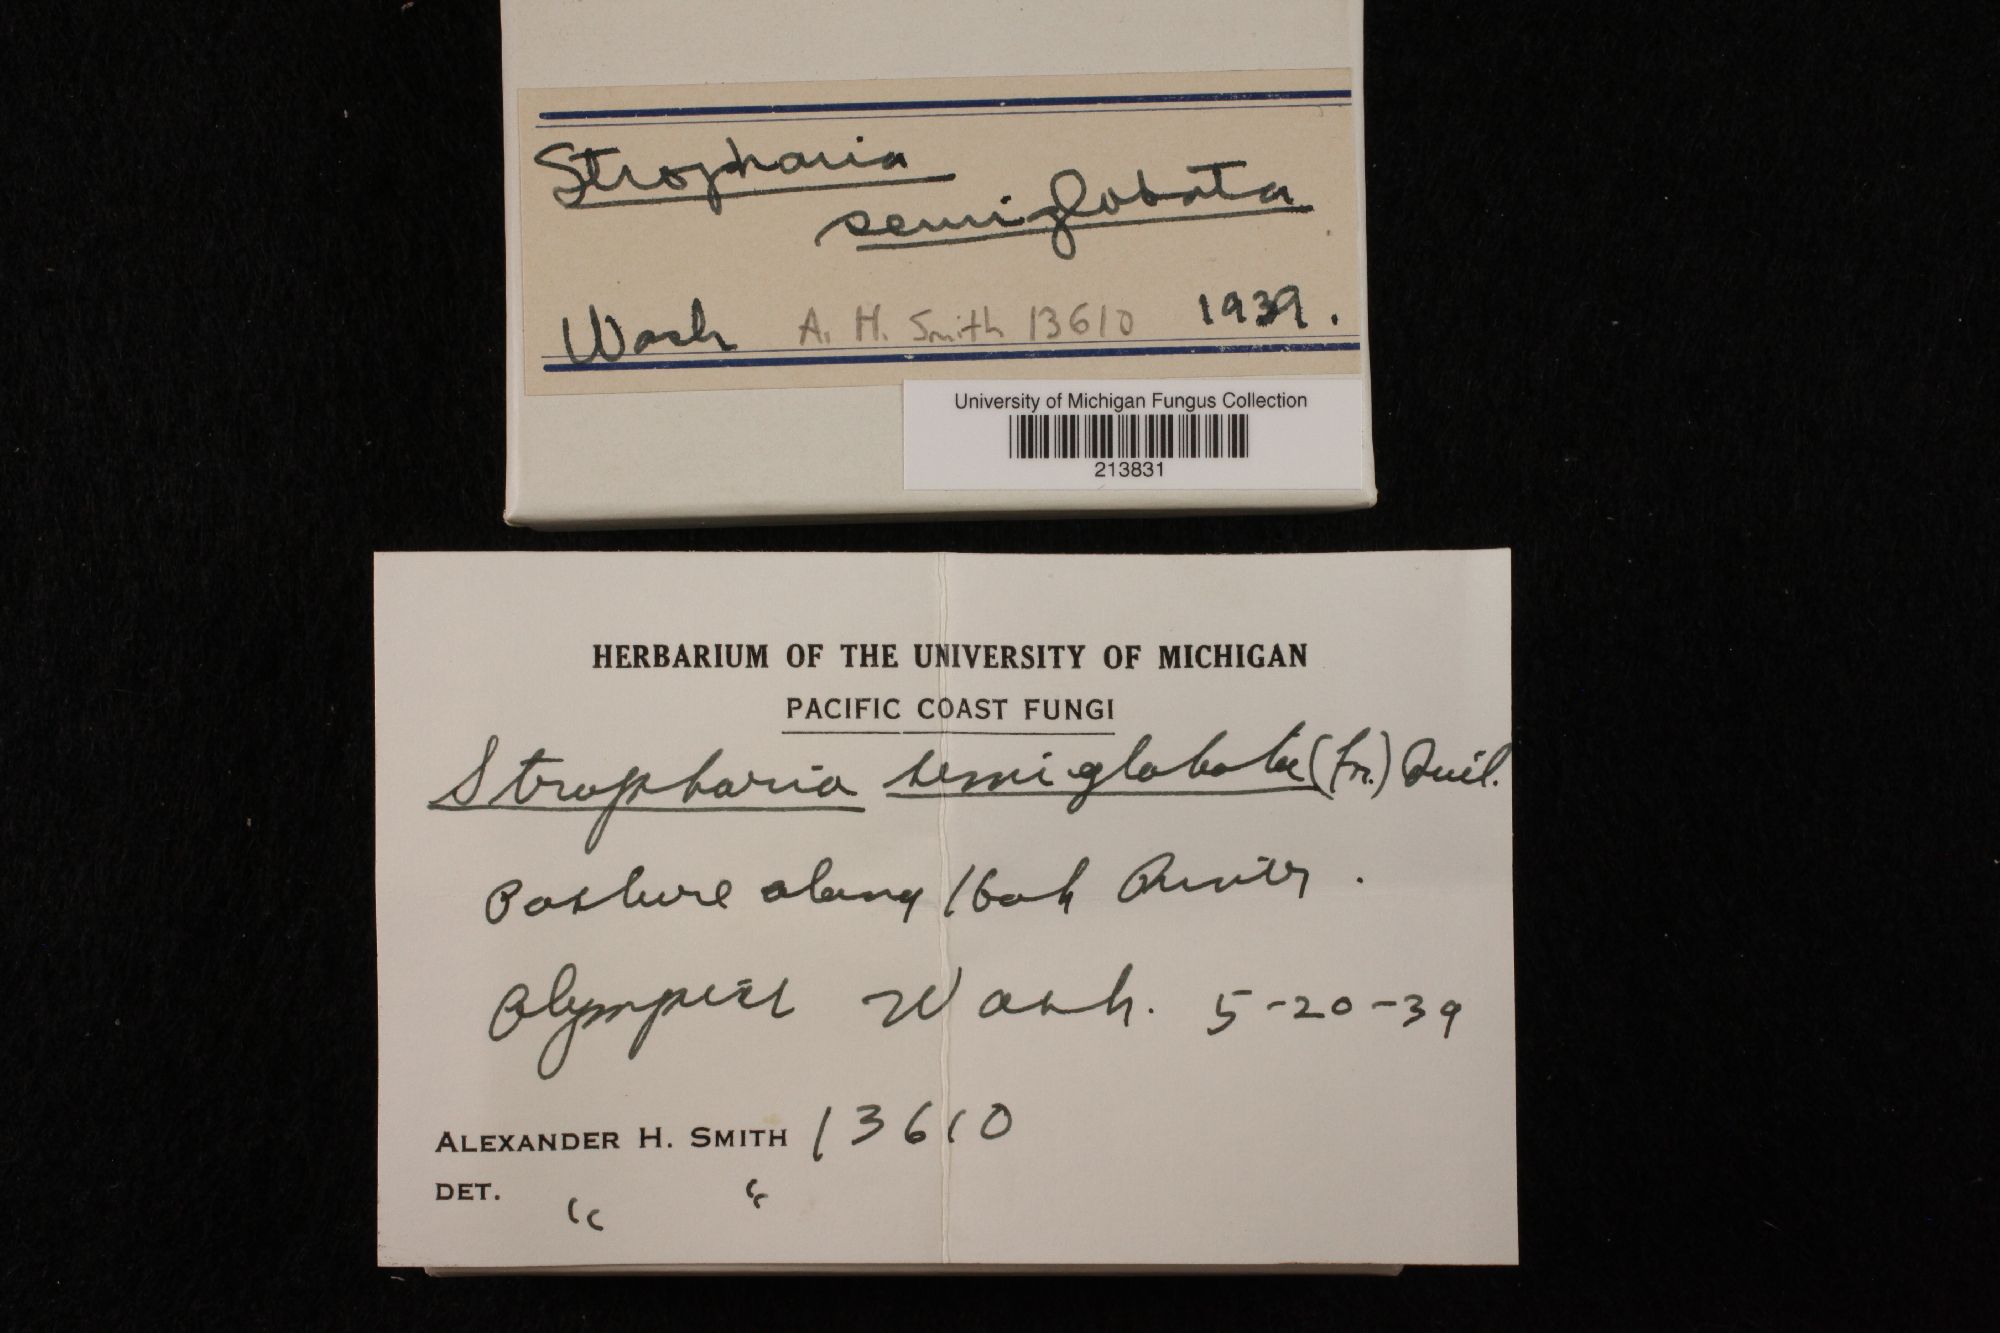 Stropharia
semiglobata
Wash A. H. Smith 13610 1939.
University of Michigan Fungus Collection
213831
HERBARIUM OF THE UNIVERSITY OF MICHIGAN
PACIFIC COAST FUNGI
Stropharia semiglobata (Fr.) Quél.
Pasture along Hoh River.
Olympics Wash. 5-20-39
ALEXANDER H. SMITH 13610
DET. " "